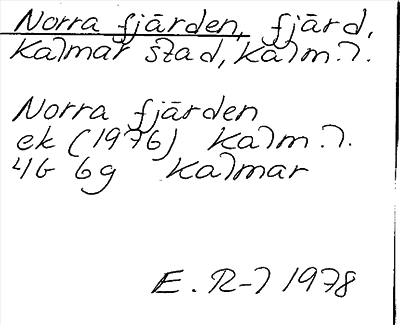 Norra fjärden, fjärd,
Kalmar stad, Kalm. l.
Norra fjärden
ek (1976) Kalm. l.
4G 6g Kalmar
E. R-l 1978